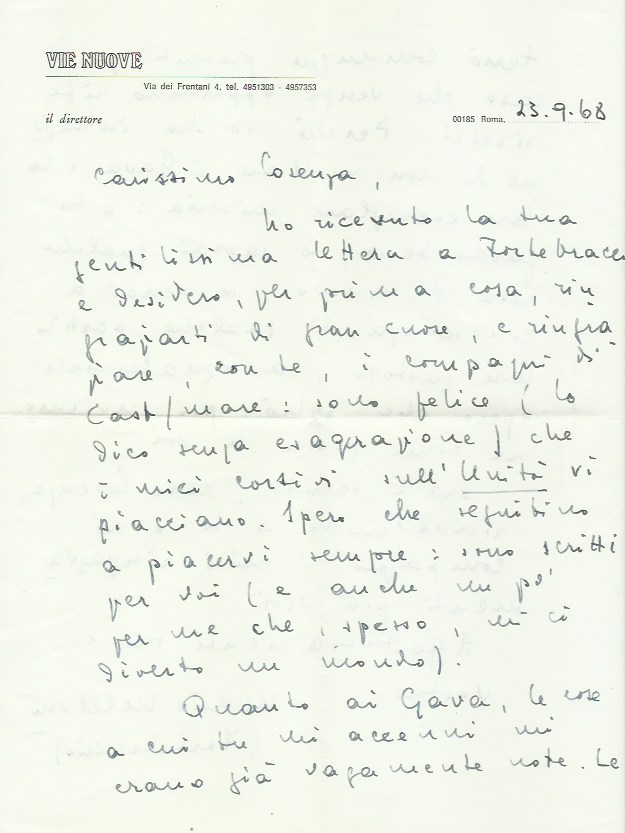 VIE NUOVE
Via dei Frentani 4, tel. 4951303 - 4957353
il direttore
00185 Roma, 23.9.68
Carissimo Cosenza,
ho ricevuto la tua
gentilissima lettera a Fortebraccio
e desidero, per prima cosa, rin
graziarti di gran cuore, e ringra
ziare, con te, i compagni di
Cast/mare: sono felice (lo
dico senza esagerazione) che
i miei corsivi sull'Unità vi
piacciano. Spero che seguitino
a piacervi sempre: sono scritti
per voi (e anche un po'
per me che, spesso, mi ci
diverto un mondo).
Quanto ai Gava, le cose
a cui tu mi accenni mi
erano già vagamente note. Le